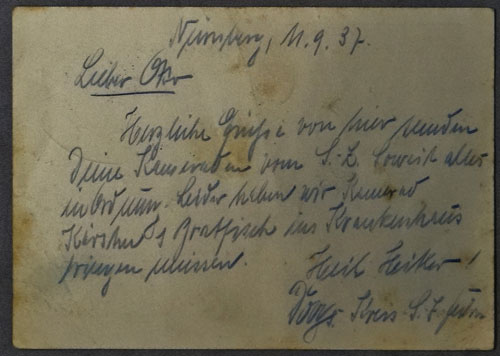 Nürnberg, 11.9.37.
Lieber Otto
Herzliche Grüsse von hier senden
Deine Kameraden vom S.-Z. Soweit alles
in Ordnung. Leider haben wir Kamerad
Bratfisch ins Krankenhaus
bringen müssen.
Heil Hitler!
S.-Z.